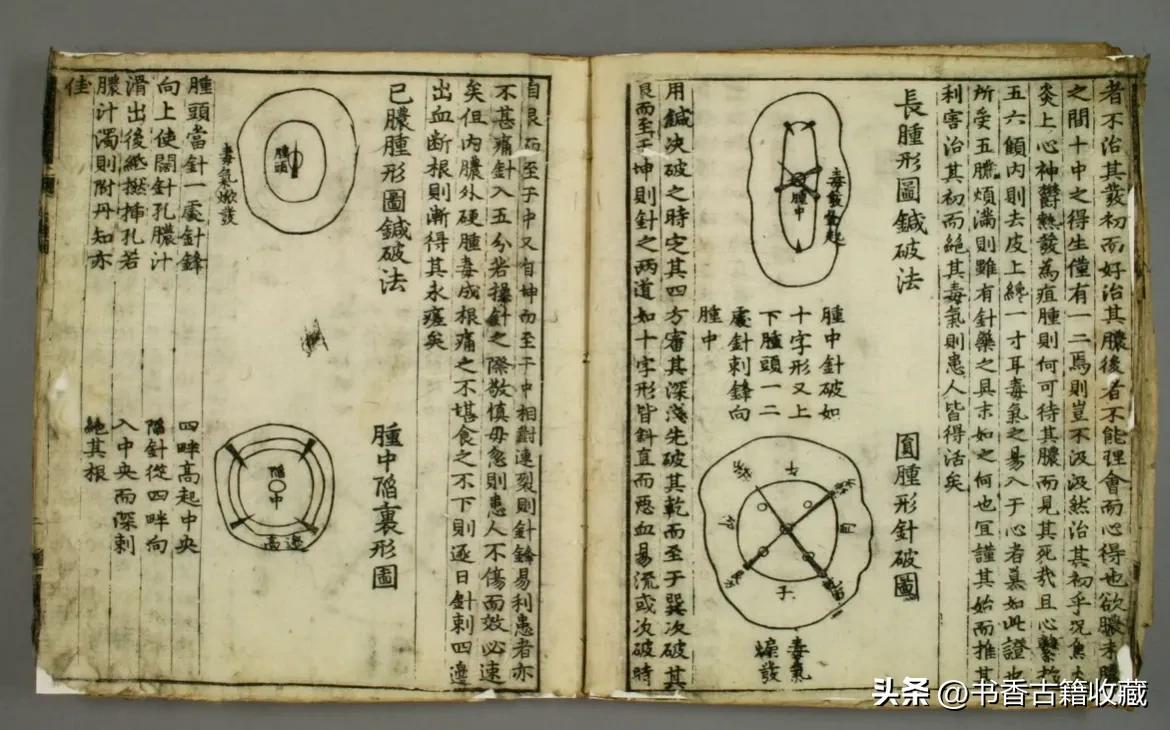 者不治其發初而好治其膿後者不能理會而心得也欲膿未膿
之間十中之得生僅有一二焉則豈不汲汲然治其初乎況焦
炎上心神鬱熱發為疽腫則何可待其膿而見其死哉且心繫於
五六傾內則去皮上纔一寸耳毒氣之易入于心者莫如此證也
所受五臟煩滿則雖有針藥之具末如之何也宜謹其始而推其
利害治其初而絕其毒氣則患人皆得活矣
長腫形圖鍼破法
毒發
腫中
腫中針破如
十字形又上
下腫頭一二
處針刺鋒向
腫中
圓腫形針破圖
午
卯
子
毒氣
燥發
用鍼決破之時定其四方審其深淺先破其乾而至于巽次破其
艮而至于坤則針之兩道如十字形皆斜直而惡血易流或次破時
自艮而至于中又自坤而至于中相對連裂則針鋒易利患者亦
不甚痛針入五分若操針之際敬慎毋忽則患人不傷而效必速
矣但內膿外硬腫毒成根痛之不堪食之不下則逐日針刺四邊
出血斷根則漸得其永瘥矣
已膿腫形圖鍼破法
腫頭
毒氣欲發
腫頭當針一處針鋒
向上使闊針孔膿汁
滑出後紙撚揷孔若
膿汁濁則附丹知亦
佳
腫中陷裏形圖
陷中
邊高
四畔高起中央
陷針從四畔向
入中央而深刺
絕其根
头条 @书香古籍收藏